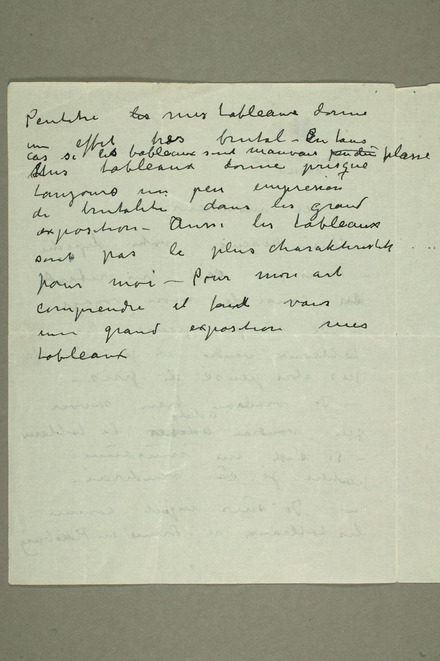 Peutetre les mes tableaux donne
un effet tres brutal – En tous
cas si les tableaux sont mauvais plasse
Mes tableaux donne presque
toujours un peu impresion
di brutalite dans les grand
exposition – Aussi les tableaux
sont pas le plus charakteristik
pour moi – Pour mon art
comprendre il faut vous
un grand exposition mes
tableaux